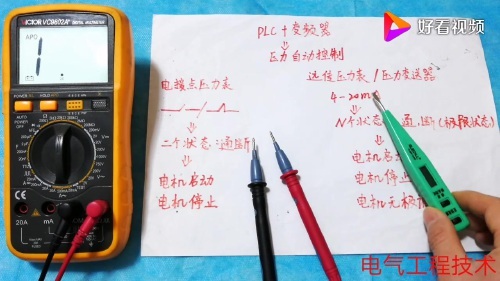 好看视频
VICTOR VC9802A+
DIGITAL MULTIMETER
APO
1
POWER
HOLD
20A
mA
PLC+变频器
压力自动控制
电接点压力表
二个状态:通断
电机启动
电机停止
远传压力表/压力变送器
4-20m
N个状态 通、断(极限状态)
电机启动
电机停止
电机无极
电气工程技术